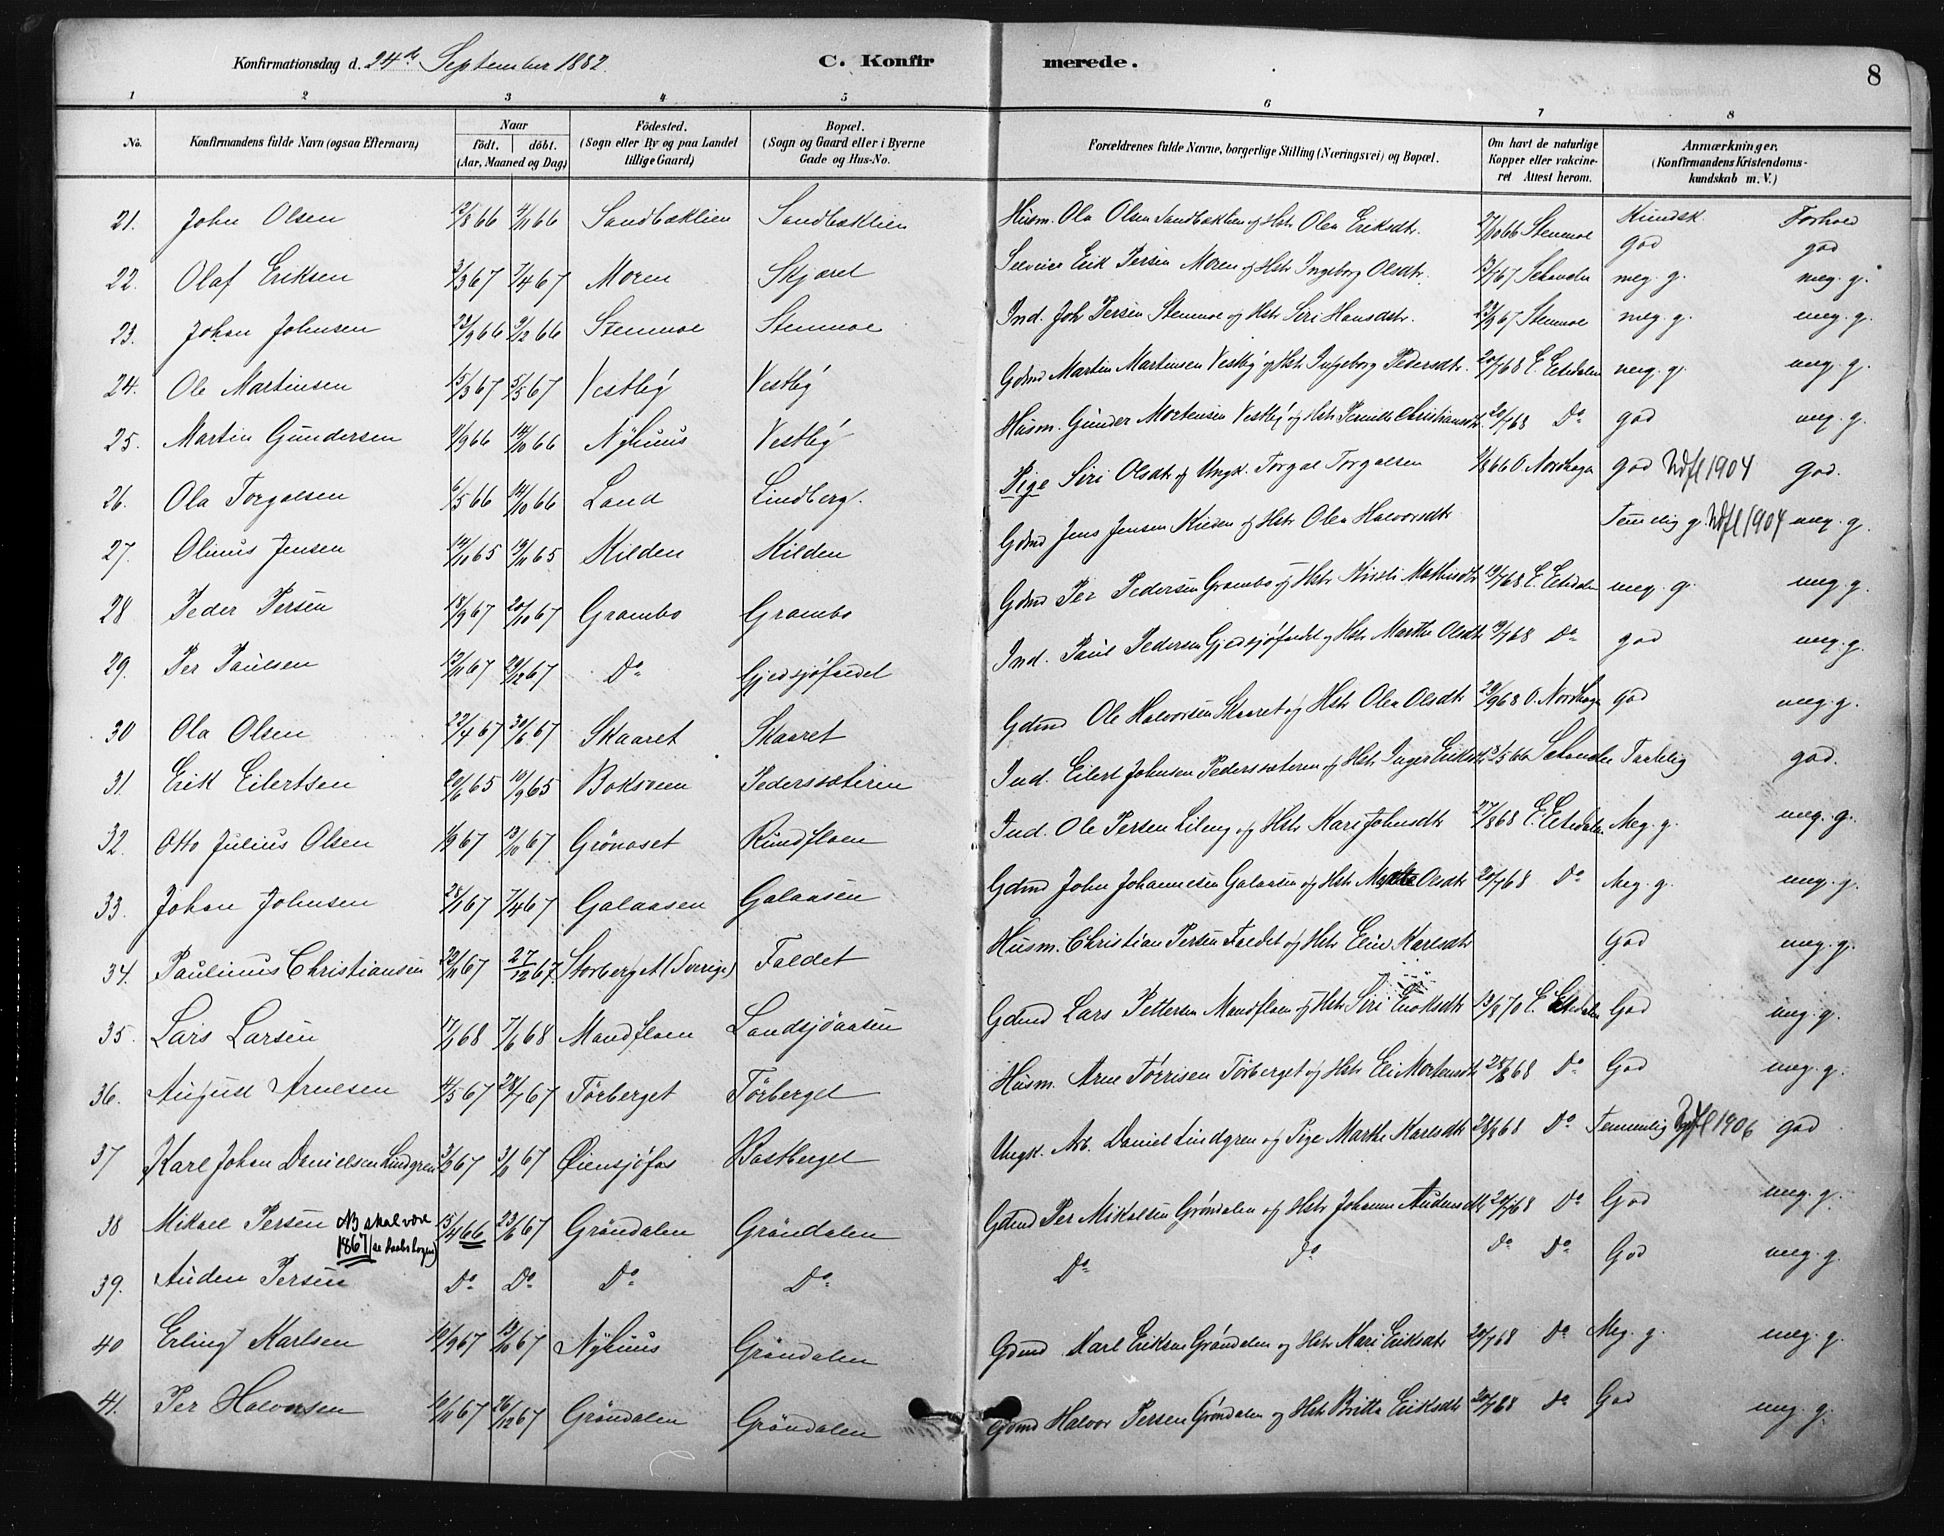 Konfirmationsdag d. 24de September 1882. C. Konfirmerede. 8
1 2 3 4 5 6 7 8
No. Konfirmandens fulde Navn (ogsaa Efternavn) Naar födt. döbt. (Aar, Maaned og Dag) Födested. (Sogn eller By og paa Landet tillige Gaard) Bopæl. (Sogn og Gaard eller i Byerne Gade og Hus-No. Forældrenes fulde Navne, borgerlige Stilling (Næringsvei) og Bopæl. Om havt de naturlige Kopper eller vakcineret Attest herom. Anmærkninger. (Konfirmandens Kristendomskundskab m. V.)
Kundsk. Forhold
21. John Olsen 12/8 66 4/11 66 Sandbæklien Sandbæklien Husm. Ola Olsen Sandbæklien og Hstr Olea Eriksdtr. 27/10 66 Stenmoe god god
22. Olaf Eriksen 2/3 67 7/4 67 Moren Skjæret Selveier Erik Persen Moren og Hstr Ingeborg Olsdtr. meg. g. meg. g.
23. Johan Johnsen 23/9 66 9/12 66 Stenmoe Stenmoe Ind. Joh Persen Stenmoe og Hstr Siri Hansdtr. 23/9 67 Stenmoe meg. g. meg. g.
24. Ole Martinsen 15/3 67 5/5 67 Vestby Vestby Gdmd Martin Martinsen Vestby og Hstr Ingeborg Pedersdtr. 20/7 68 E. Etsdalen meg. g. meg. g.
25. Martin Gundersen 9/9 66 14/10 66 Nyhuus Vestby Husm. Gunder Mortensen Vestby og Hstr Pernille Christiansdtr 20/7 68 Do god meg. g.
26. Ola Torgalsen 6/5 66 14/10 66 Land Lindberg. Pige Siri Olsdtr og Ungk. Torgal Torgalsen O. Nordhagen god Udfl 1904 god.
27. Olinus Jensen 14/10 65 19/11 65 Kilden Kilden Gdmd Jens Jensen Kilden og Hstr Olea Halvorsdtr Temelig g. Udfl 1904 meg. g.
28 Peder Persen 18/9 67 20/10 67 Grambo Grambo Gdmd Per Pedersen Grambo og Hstr Kirsti Mathisdtr 19/7 68 E. Etsdalen meg. g. meg. g.
29. Per Paulsen 12/11 67 29/12 67 Do Gjedsjöfaldet Ind. Paul Pedersen Gjedsjöfaldet og Hstr Marthe Olsdtr 19/7 68 Do god meg. g.
30 Ola Olsen 22/4 67 30/6 67 Skaaret Skaaret Gdmd Ole Halvorsen Skaaret og Hstr Olea Olsdtr 29/9 68 O. Nordhagen god meg. g.
31. Erik Eilertsen 20/6 65 10/9 65 Boksveen Pederssæteren Ind. Eilert Johnsen Pederssæteren og Hstr Inger Eriksdtr Taalelig god.
32. Otto Julius Olsen 1/9 67 13/10 67 Grönoset Rundfloen Ind. Ole Persen Lileng og Hstr Kari Johnsdtr 27/8 68 E. Etsdalen Meg. g. meg. g.
33. Johan Johnsen 28/1 67 7/4 67 Galaasen Galaasen Gdmd John Johannesen Galaasen og Hstr Olsdtr 20/7 68 Do Meg. g. meg. g.
34. Paulinus Christiansen 22/11 67 27/12 67. Storberget (Sverige) Faldet Husm. Christian Persen Faldet og Hstr Elin Karlsdtr God meg. g.
35. Lars Larsen 17/1 68 7/6 68 Mandfloen Landsjöaasen Gdmd Lars Pettersen Mandfloen og Hstr Siri Enoksdtr 13/8 70 E. Etsdalen God meg. g.
36. August Arnesen 4/5 67 28/7 67 Törberget Törberget Husm. Arne Törrisen Törberget og Hstr Eli Mortensdtr 28/8 68 Do God meg. g.
37 Karl Johan Danielsen Lindgren 3/9 67 3/11 67 Øiensjöfos Bastberget Ungk. Arb. Daniel Lindgren og Pige Marthe Karlsdtr 28/8 68 Do Temmelig Udfl 1906 god
38 Mikael Persen NB skal være 1867 (se Daabsbogen) 15/4 66 23/6 67 Gröndalen Gröndalen Gdmd Per Mikalsen Gröndalen og Hstr Johanne Audensdtr 20/7 68 Do God meg. g.
39. Auden Persen Do Do Do Do Do Do Do Do God meg. g.
40 Erling Karlsen 10/9 67 13/10 67 Nyhuus Gröndalen Gdmd Karl Eriksen Gröndalen og Hstr Kari Eriksdtr 20/7 68 Do Meg. g. meg. g.
41. Per Halvorsen 10/11 67 26/12 67 Gröndalen Gröndalen Gdmd Halvor Persen Gröndalen og Hstr Britta Eriksdtr 20/7 68 Do God meg. g.